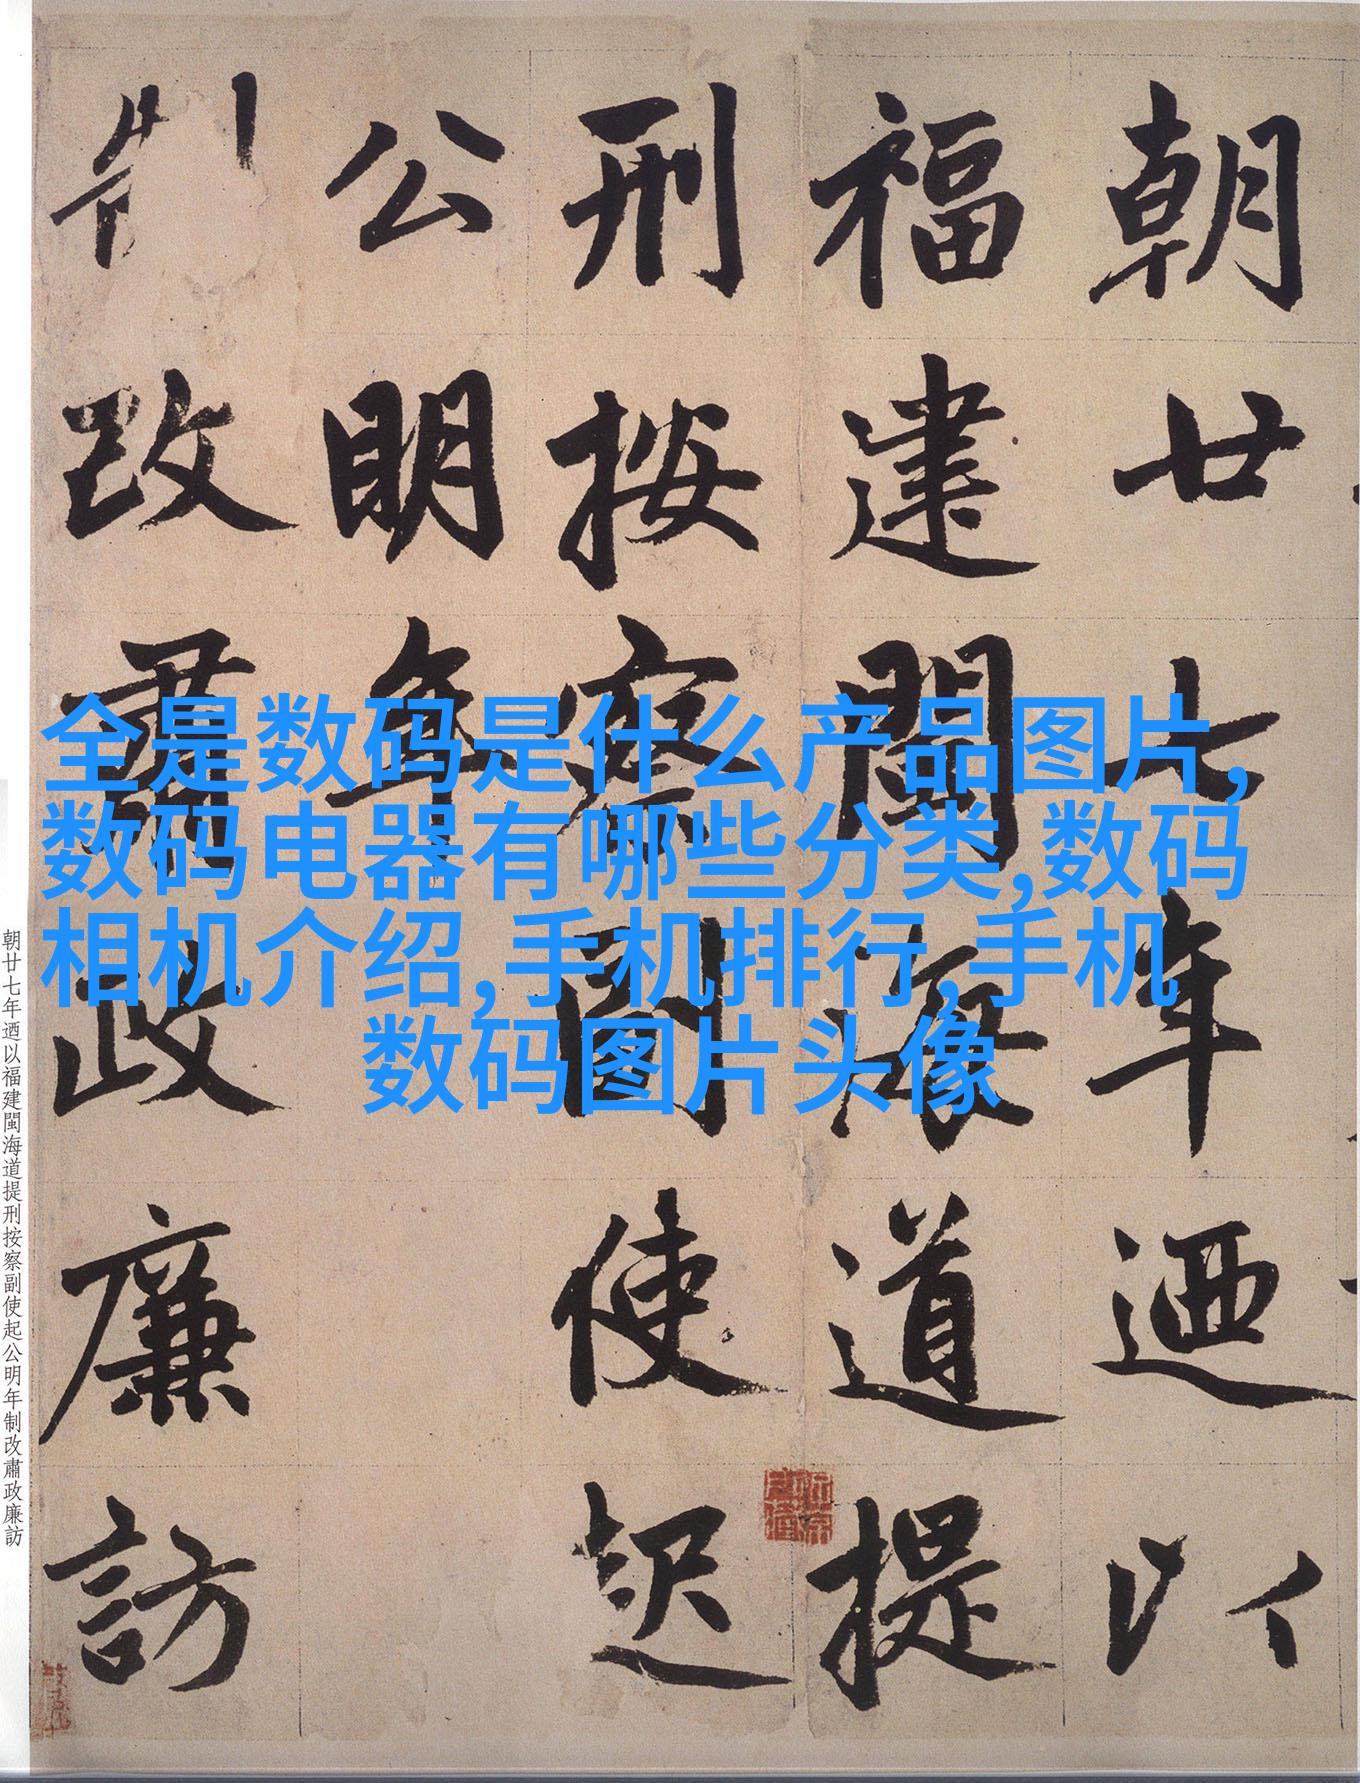 朝廿七年迺以
福建閩海道提
刑按察副使起
公明年
制改肅政廉訪
全是数码是什么产品图片,
数码电器有哪些分类,数码
相机介绍,手机排行,手机
数码图片头像
朝廿七年迺以福建閩海道提刑按察副使起公明年制改肅政廉訪